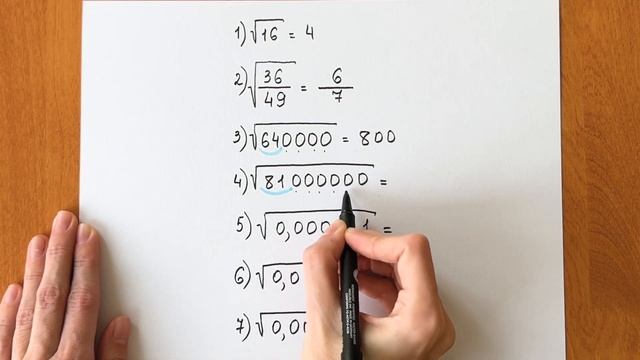 1) √16 = 4
2) √36/49 = 6/7
3) √640000 = 800
4) √81000000 =
5) √0,000 1 =
6) √0,0
7) √0,00